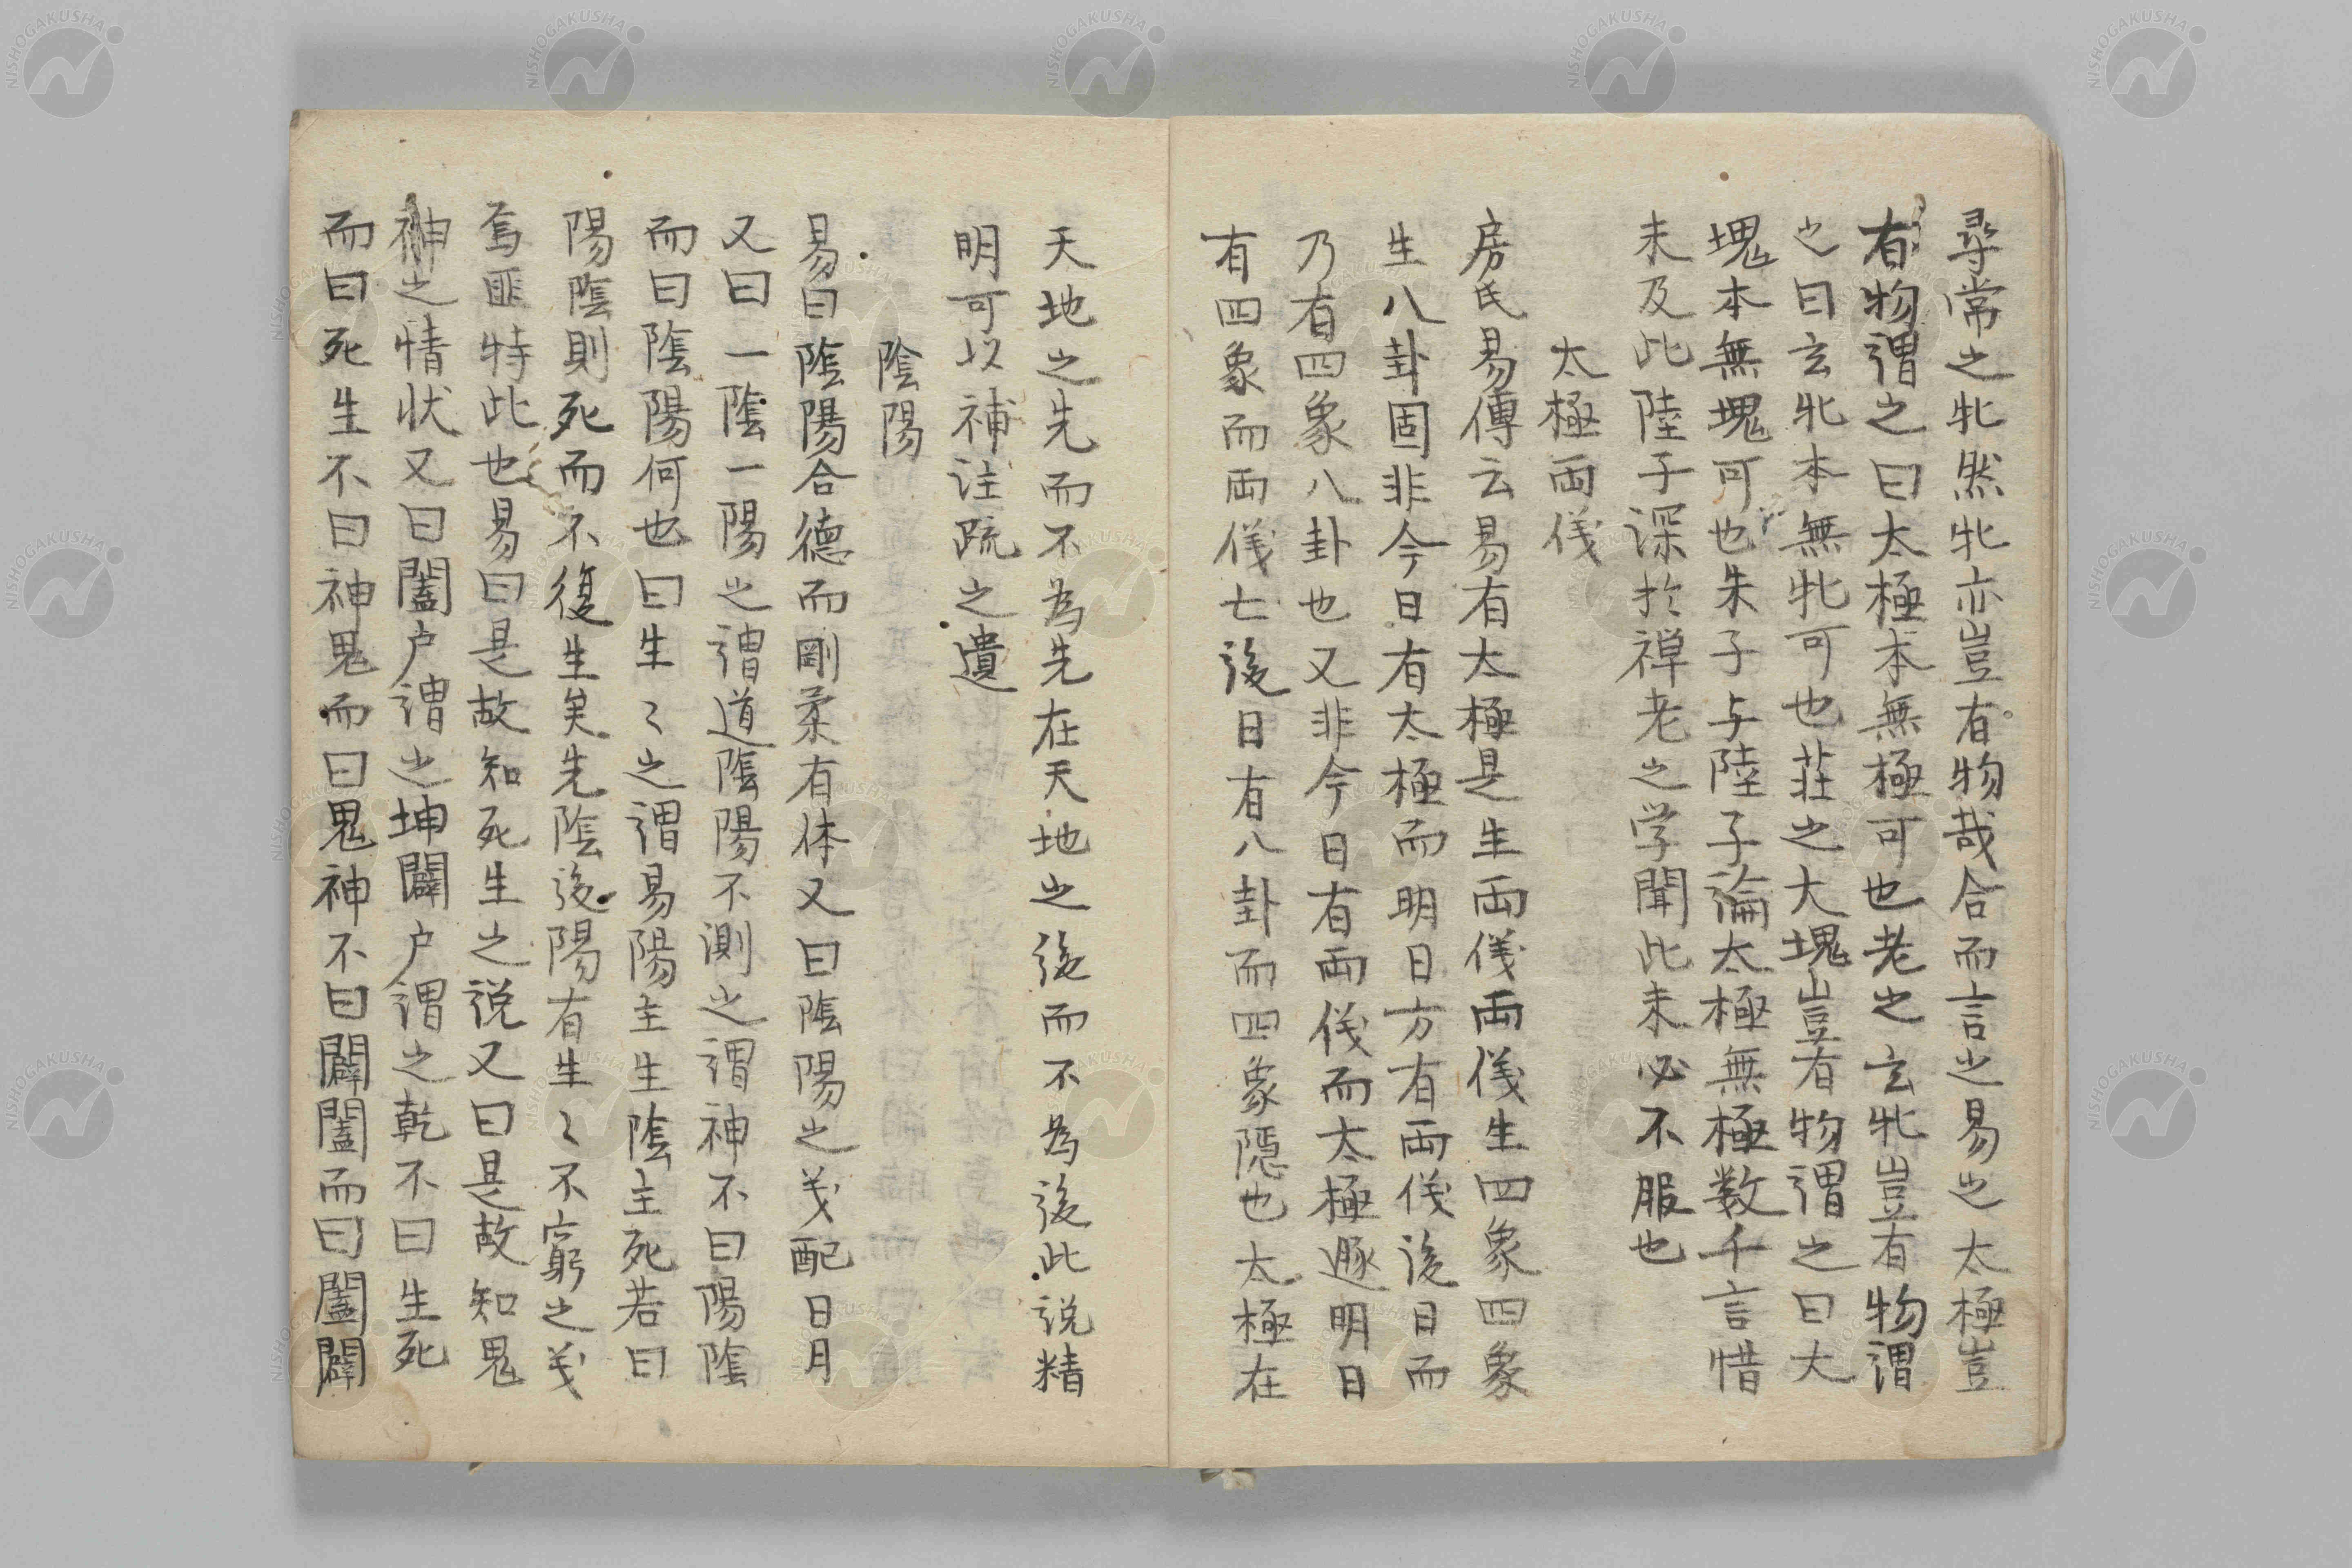 尋常之牝然牝亦豈有物哉合而言之易之太極豈
有物謂之曰太極本無極可也老之玄牝豈有物謂
之曰玄牝本無牝可也荘之大塊豈有物謂之曰大
塊本無塊可也朱子与陸子論太極無極数千言惜
未及此陸子深於禅老之学聞此未必不服也
太極両儀
房氏易傳云易有太極是生両儀両儀生四象四象
生八卦固非今日有太極而明日方有両儀後日而
乃有四象八卦也又非今日有両儀而太極遯明日
有四象而両儀亡後日有八卦而四象隠也太極在
天地之先而不為先在天地之後而不為後此説精
明可以補註疏之遺
陰陽
易曰陰陽合徳而剛柔有体又曰陰陽之义配日月
又曰一陰一陽之謂道陰陽不測之謂神不曰陽陰
而曰陰陽何也曰生〻之謂易陽主生陰主死若曰
陽陰則死而不復生矣先陰後陽有生〻不窮之义
焉匪特此也易曰是故知死生之説又曰是故知鬼
神之情状又曰闔户謂之坤闢户謂之乾不曰生死
而曰死生不曰神鬼而曰鬼神不曰闢闔而曰闔闢
NISHOGAKUSHA